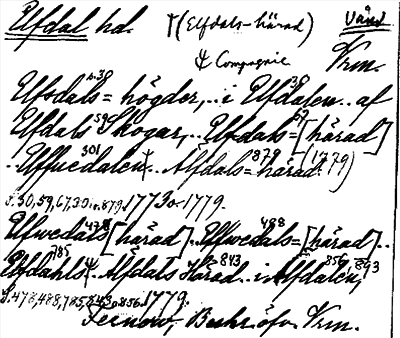 Elfdal hd. (Elfdals-härad) Vänd
& Compagnie Vrm.
Elfsdals= högder, .. i Elfdalen .. af
Elfdals Skogar, .. Elfdals= [härad]
Elffuedalen .. Älfdals= härad. (1779)
s. 30, 59, 67, 301 o. 879. 1773 o. 1779.
Elfwedals [härad] .. Elfwedals= [härad] ..
Elfdahls .. Älfdals Härad .. i Älfdalen,
s. 478, 488, 785, 843 o. 856. 1779.
Fernow, Beskr. öfv. Vrm.